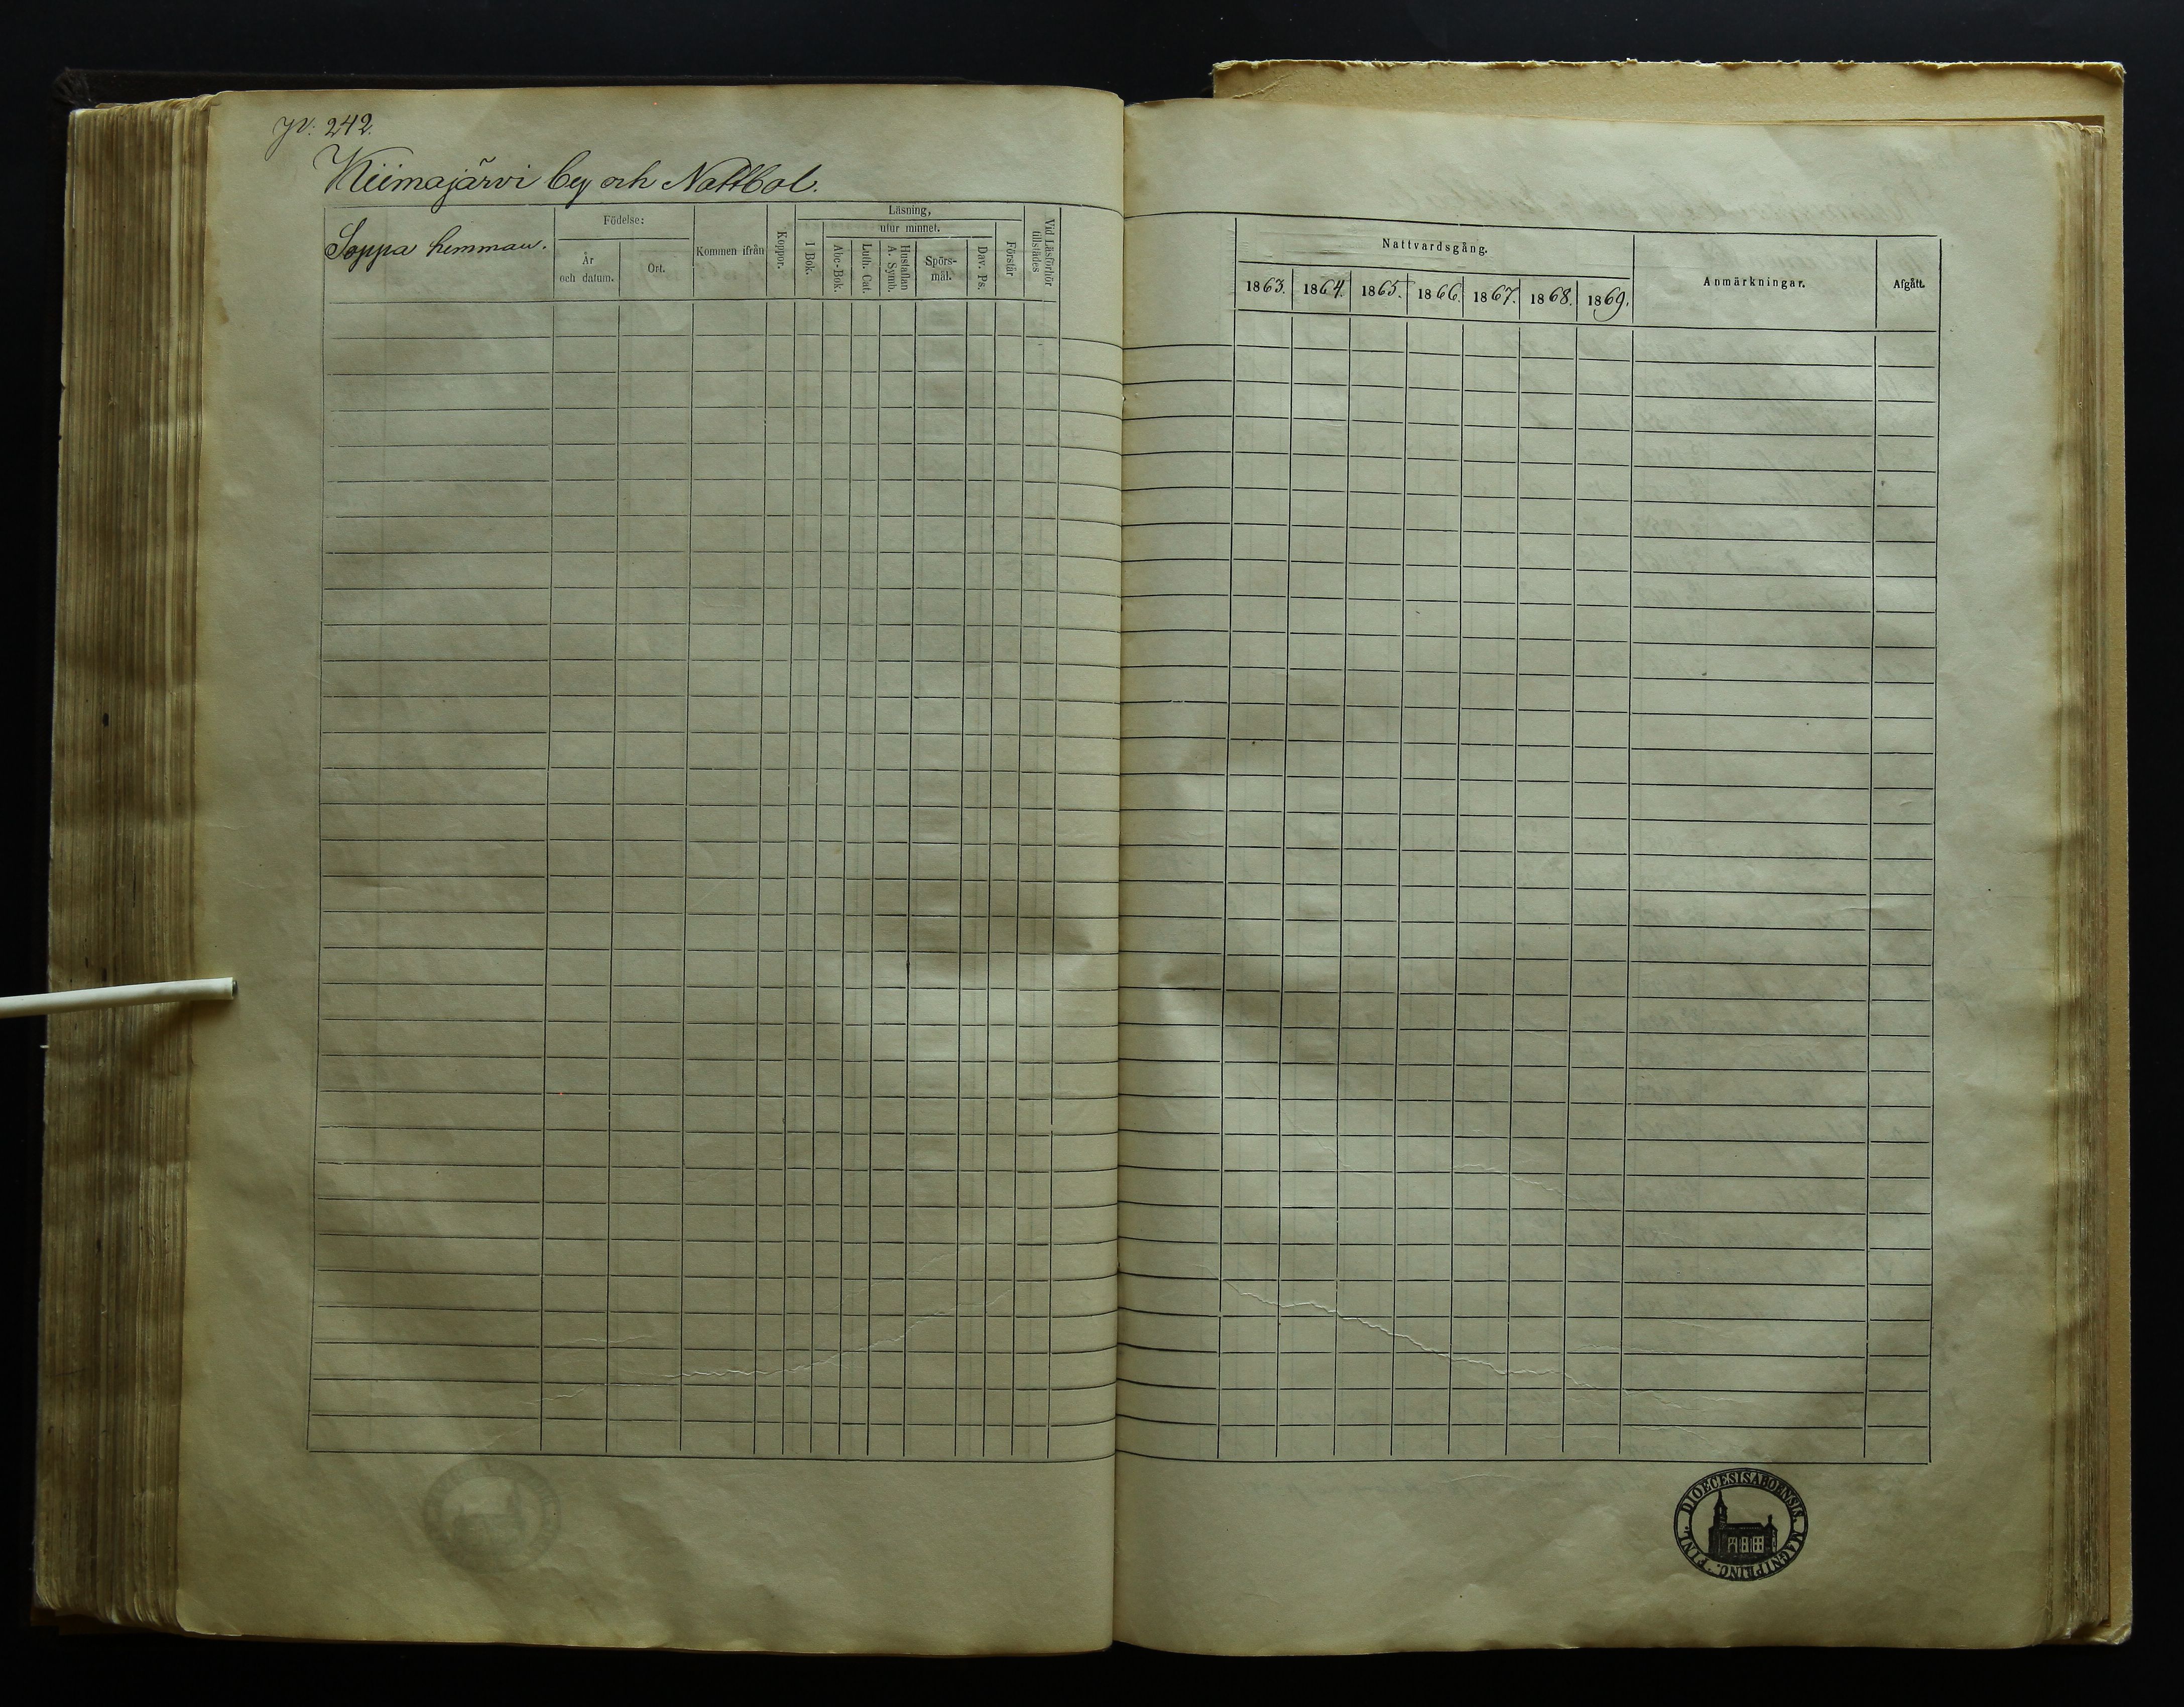 242.
Kiimajärvi by och Nattbol.
Soppa hemman.
Födelse:
År
och datum.
Ort.
Kommen ifrån
Koppor.
Läsning,
utur minnet.
I Bok.
Abc-Bok.
Luth. Cat.
Hustaflan
A. Symb.
Spörs-
mål.
Dav. Ps.
Förstår
Vid Läsförhör
tillstädes
Nattvardsgång.
1863. 1864. 1865. 1866. 1867. 1868. 1869.
Anmärkningar.
Afgått.
DIOECESIS ABOENSIS. MAGNI PRINC. FINL.